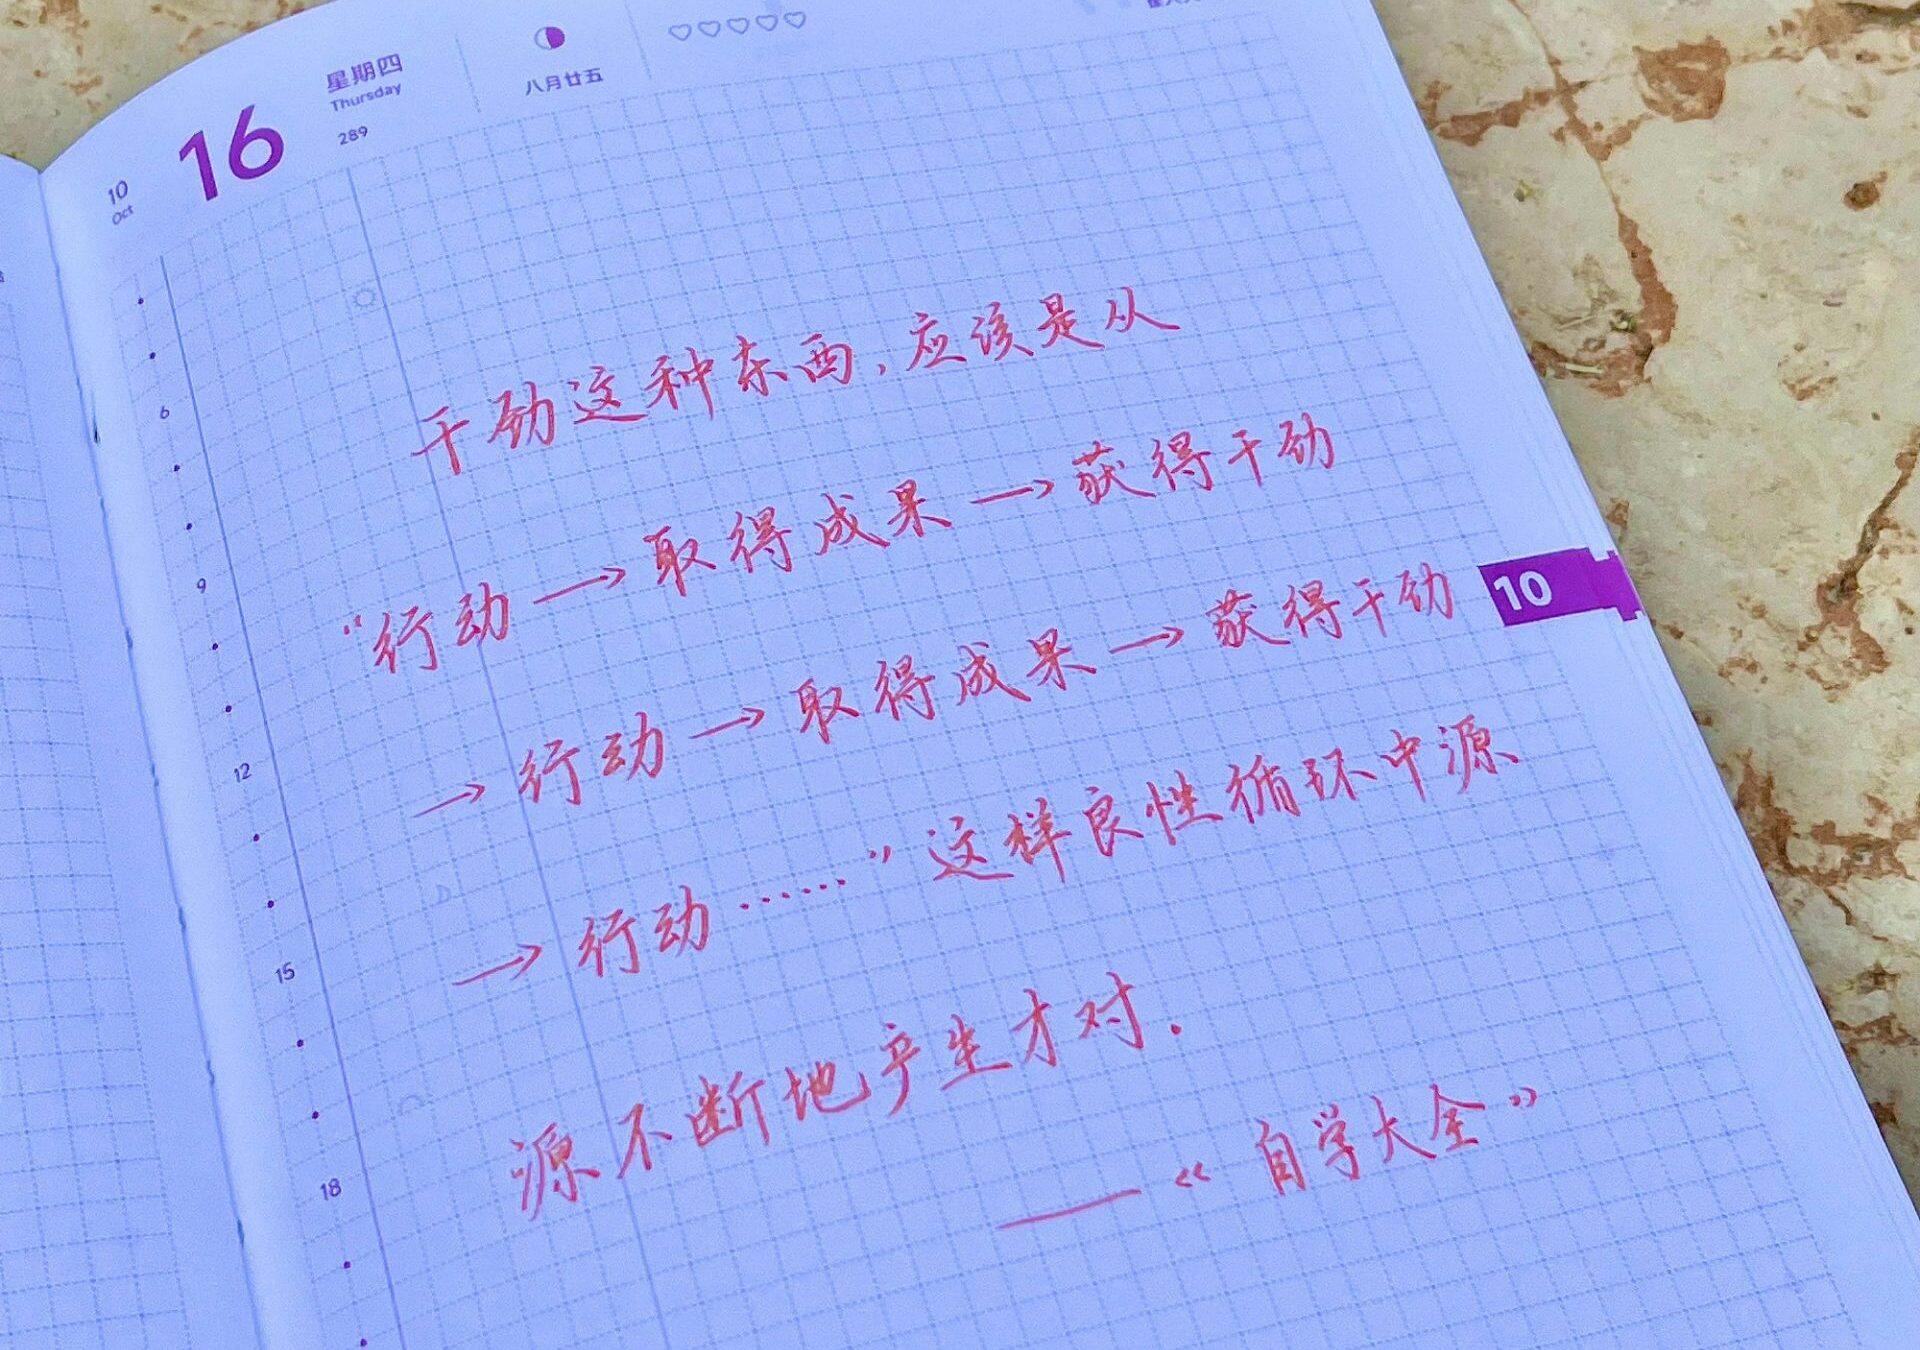 10
Oct
16
星期四
Thursday
289
八月廿五
干劲这种东西,应该是从
“行动→取得成果→获得干劲
→行动→取得成果→获得干劲
→行动……”这样良性循环中源
源不断地产生才对.
——《自学大全》
6
9
12
15
18
10